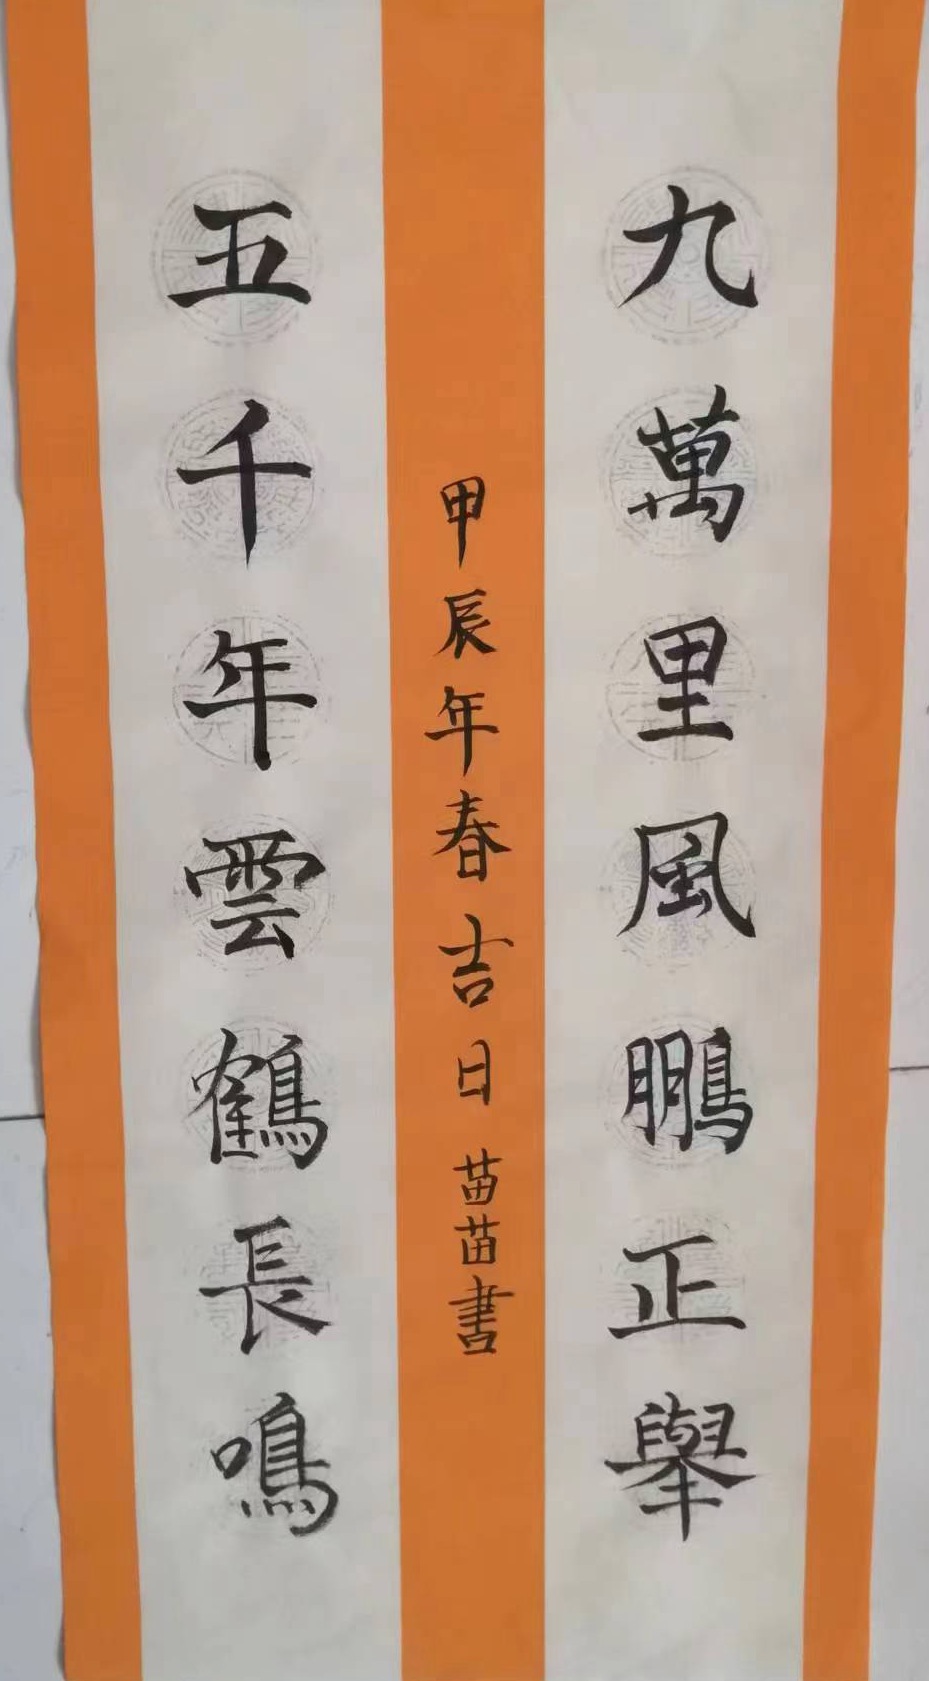 九萬里風鵬正舉
甲辰年春吉日 苗苗書
五千年雲鶴長鳴